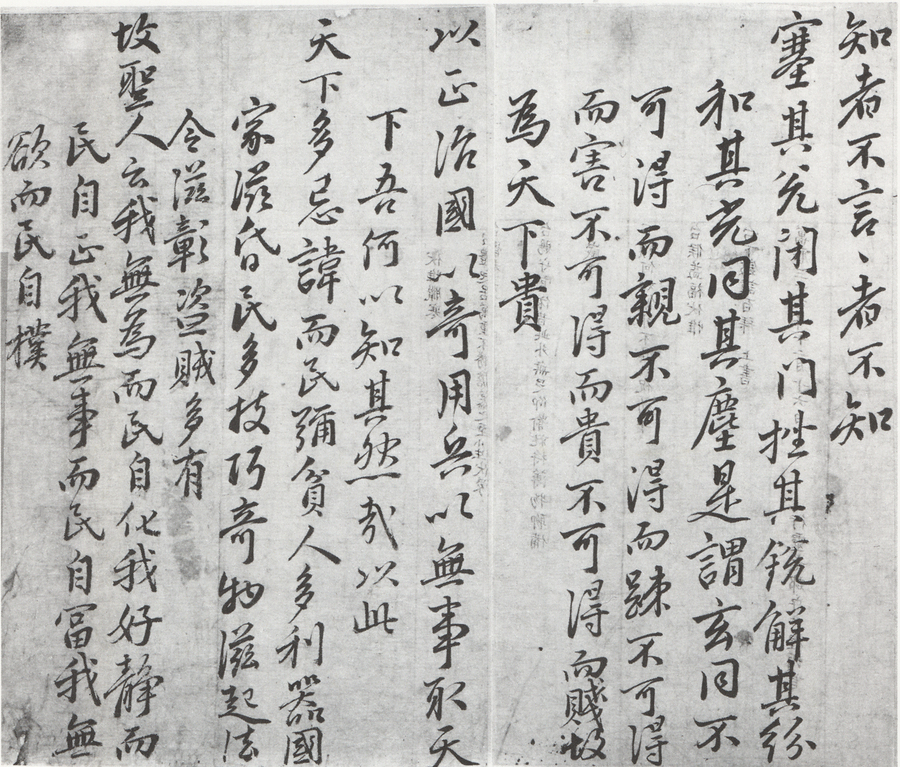 知者不言〻者不知
塞其兌閉其門挫其銳解其紛
和其光同其塵是謂玄同不
可得而親不可得而踈不可得
而害不可得而貴不可得而賤故
為天下貴
以正治國以竒用兵以無事取天
下吾何以知其然哉以此
天下多忌諱而民彌貧人多利器國
家滋昏民多技巧竒物滋起法
令滋彰盜賊多有
故聖人云我無為而民自化我好靜而
民自正我無事而民自冨我無
欲而民自樸